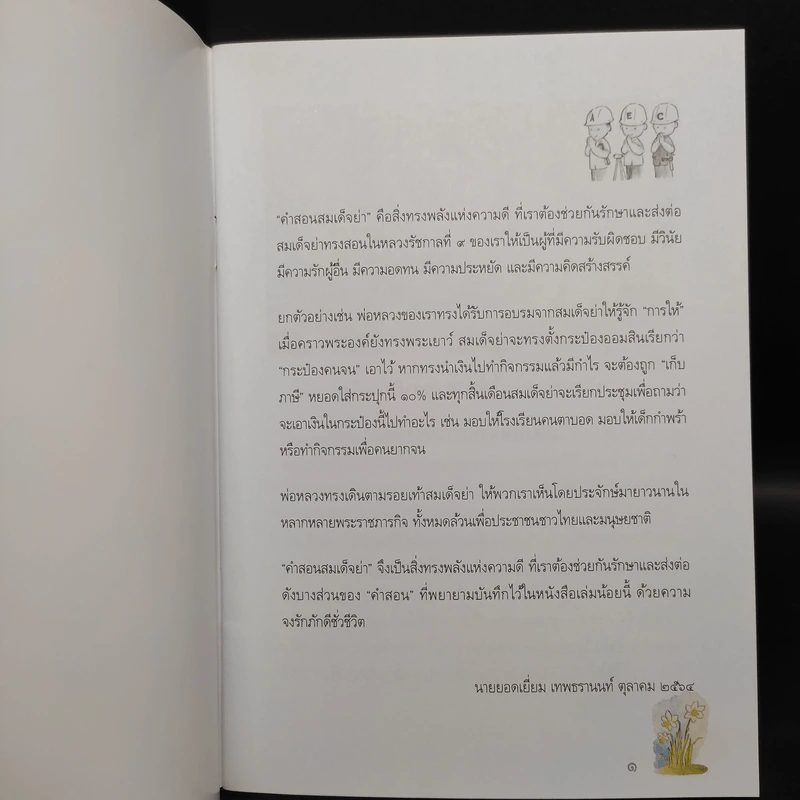 A E C
“คำสอนสมเด็จย่า” คือสิ่งทรงพลังแห่งความดี ที่เราต้องช่วยกันรักษาและส่งต่อ
สมเด็จย่าทรงสอนในหลวงรัชกาลที่ ๙ ของเราให้เป็นผู้ที่มีความรับผิดชอบ มีวินัย
มีความรักผู้อื่น มีความอดทน มีความประหยัด และมีความคิดสร้างสรรค์
ยกตัวอย่างเช่น พ่อหลวงของเราทรงได้รับการอบรมจากสมเด็จย่าให้รู้จัก “การให้”
เมื่อคราวพระองค์ยังทรงพระเยาว์ สมเด็จย่าจะทรงตั้งกระป๋องออมสินเรียกว่า
“กระป๋องคนจน” เอาไว้ หากทรงนำเงินไปทำกิจกรรมแล้วมีกำไร จะต้องถูก “เก็บ
ภาษี” หยอดใส่กระปุกนี้ ๑๐% และทุกสิ้นเดือนสมเด็จย่าจะเรียกประชุมเพื่อถามว่า
จะเอาเงินในกระป๋องนี้ไปทำอะไร เช่น มอบให้โรงเรียนคนตาบอด มอบให้เด็กกำพร้า
หรือทำกิจกรรมเพื่อคนยากจน
พ่อหลวงทรงเดินตามรอยเท้าสมเด็จย่า ให้พวกเราเห็นโดยประจักษ์มายาวนานใน
หลากหลายพระราชภารกิจ ทั้งหมดล้วนเพื่อประชาชนชาวไทยและมนุษยชาติ
“คำสอนสมเด็จย่า” จึงเป็นสิ่งทรงพลังแห่งความดี ที่เราต้องช่วยกันรักษาและส่งต่อ
ดังบางส่วนของ “คำสอน” ที่พยายามบันทึกไว้ในหนังสือเล่มน้อยนี้ ด้วยความ
จงรักภักดีชั่วชีวิต
นายยอดเยี่ยม เทพธรานนท์ ตุลาคม ๒๕๖๔
๑